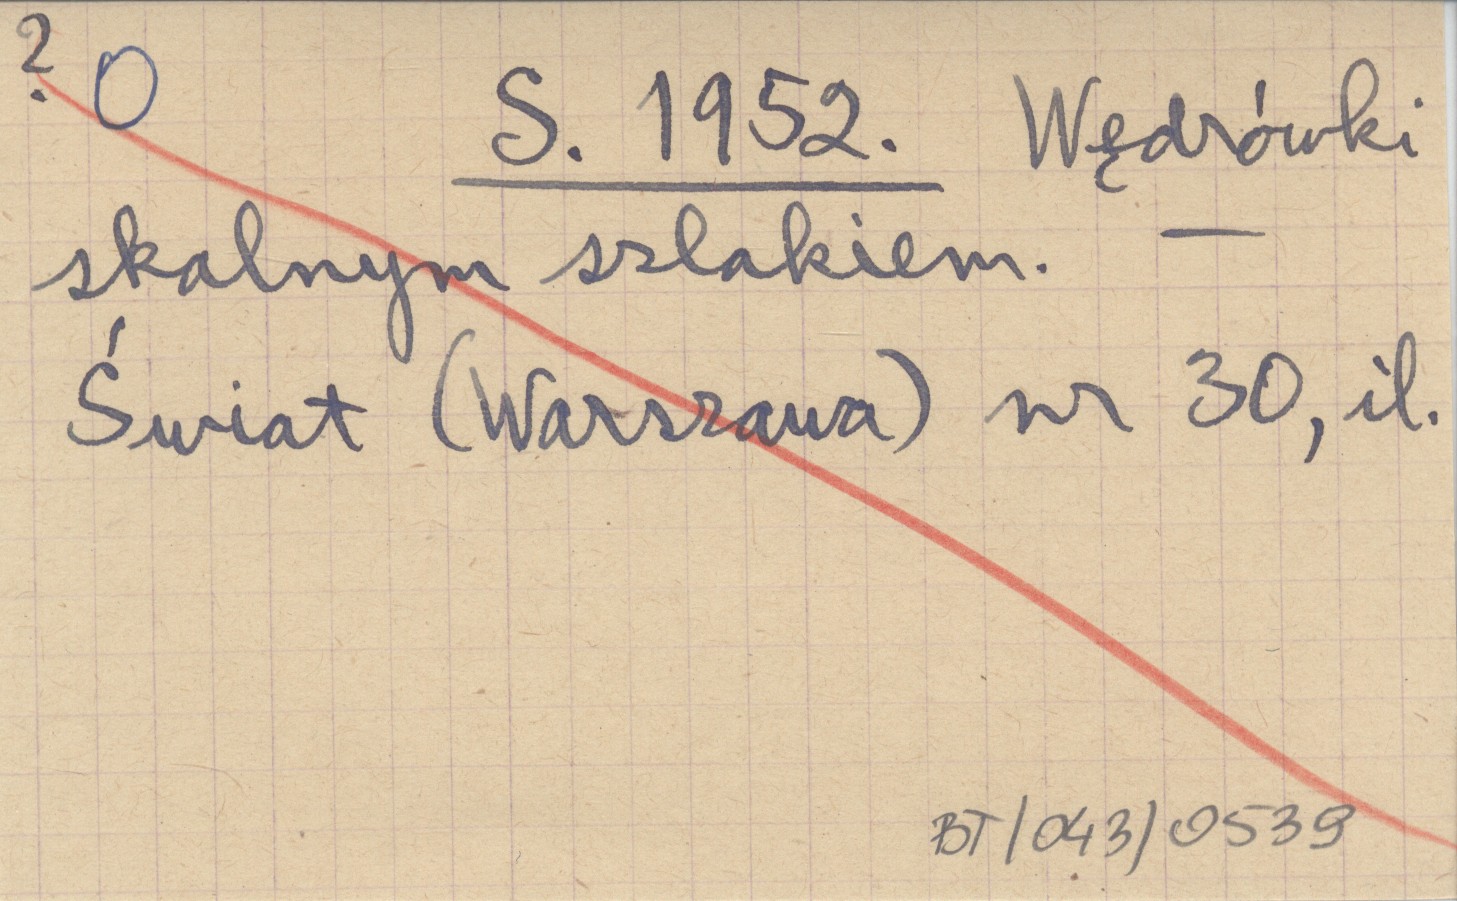 ? O
S. 1952. Wędrówki
skalnym szlakiem. —
Świat (Warszawa) nr 30, il.
BT/043/0539